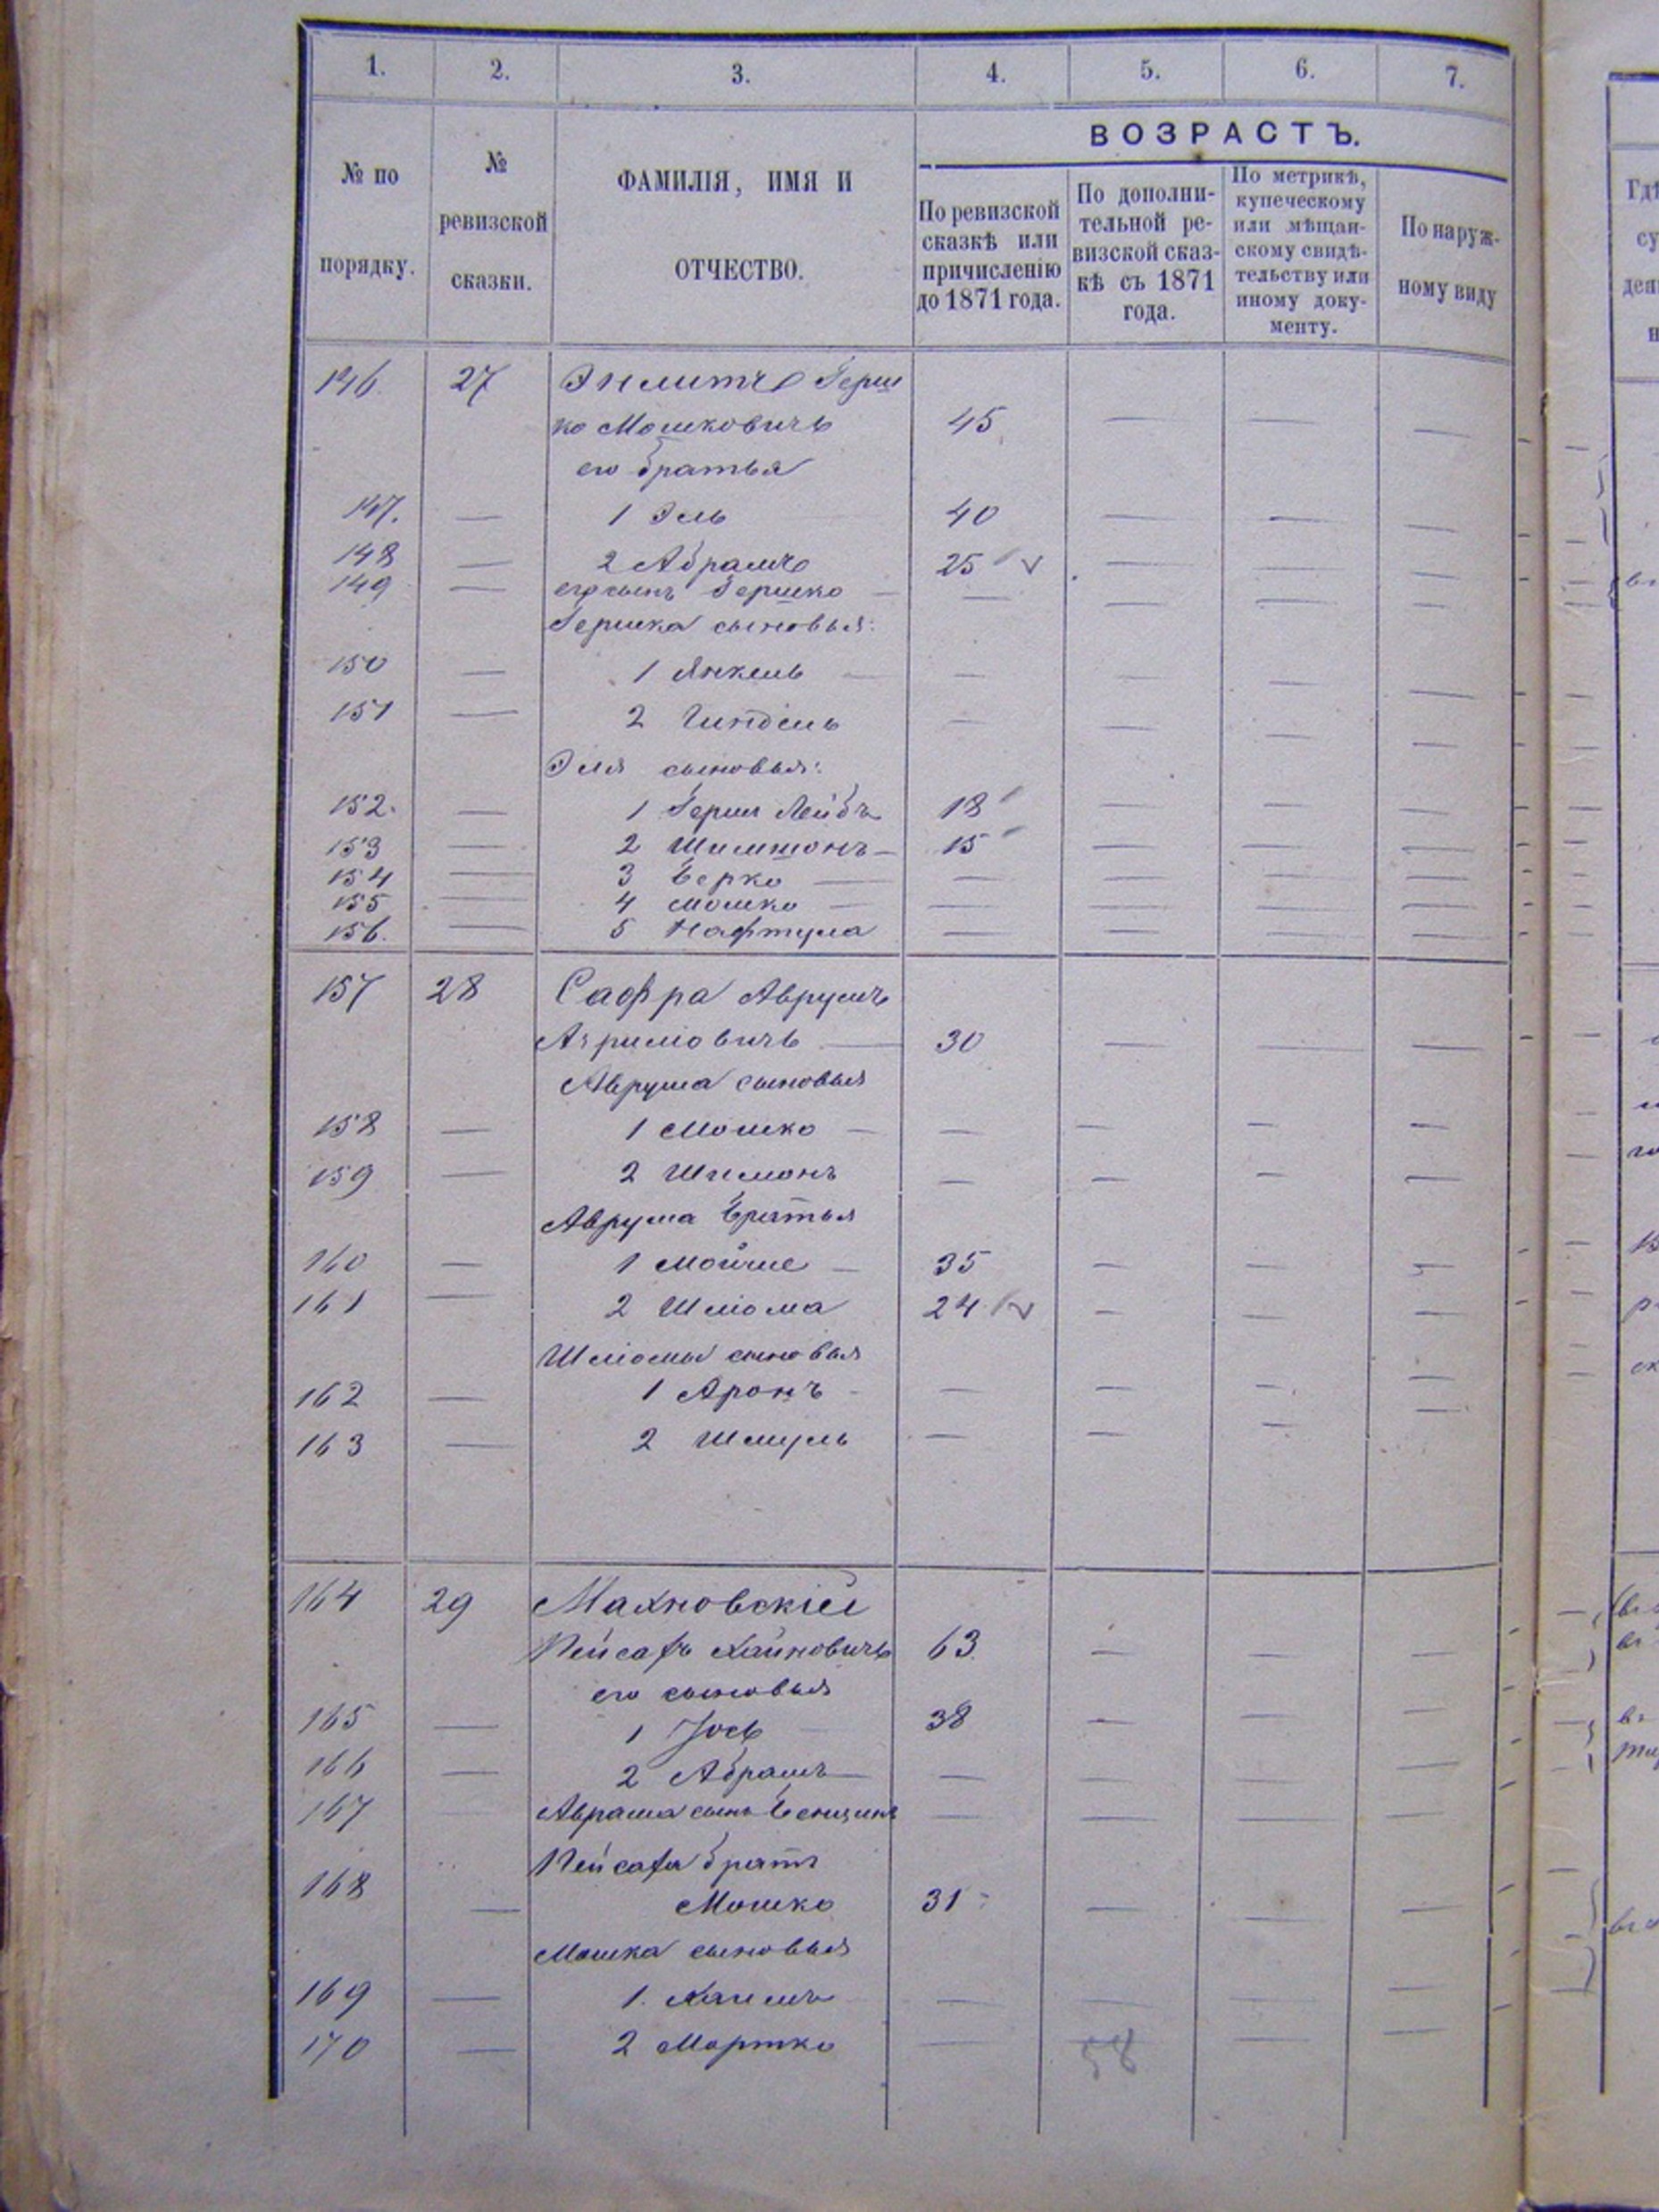 1. 2. 3. 4. 5. 6. 7.
№ по порядку.
№ ревизской сказки.
ФАМИЛІЯ, ИМЯ И ОТЧЕСТВО.
ВОЗРАСТЪ.
По ревизской сказкѣ или причисленію до 1871 года.
По дополни-
тельной ре-
визской сказ-
кѣ съ 1871
года.
По метрикѣ,
купеческому
или мѣщан-
скому свидѣ-
тельству или
иному доку-
менту.
По наруж-
ному виду
146. 27 Герш
ко Мошковичъ 45 — — —
его братья
147. — 1 Эль 40 — — —
148 — 2 Абрамъ 25 — — —
149 — его сынъ Гершко — — — —
Гершка сыновья:
150 — 1 Янкель — — — —
151 — 2 — — — —
Эля сыновья:
152. — 1 Герш Лейбъ 18 — — —
153 — 2 Шимшонъ 15 — — —
154 — 3 Берко — — — —
155 — 4 Мошко — — — —
156. — 5 Нафтула — — — —
157 28 Сафра Аврумъ
30 — — —
Аврума сыновья
158 — 1 Мошко — — — —
159 — 2 Шимонъ — — — —
Аврума братья
160 — 1 Мойше 35 — — —
161 — 2 Шліома 24 — — —
Шліомы сыновья
162 — 1 Аронъ — — — —
163 — 2 Шмуль — — — —
164 29 Махновскій
Пейсахъ Хаимовичъ 63. — — —
его сыновья
165 — 1 Іось 38 — — —
166 — 2 Абрамъ — — — —
167 Аврама сынъ Бенционъ — — — —
Пейсаха братъ
168 — Мошко 31 — — —
Мошка сыновья
169 — 1. Хаимъ — — — —
170 — 2 Мортко — — — —
58